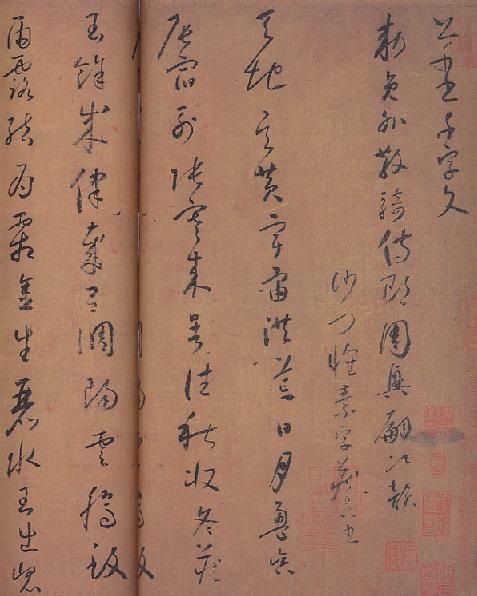 草書千字文
敕員外散騎侍郎周興嗣次韻
沙門懷素字藏真書
天地玄黃宇宙洪荒日月盈昃
辰宿列張寒來暑往秋收冬藏
閏餘成律歲呂調陽雲騰致
雨露結為霜金生麗水玉出崑